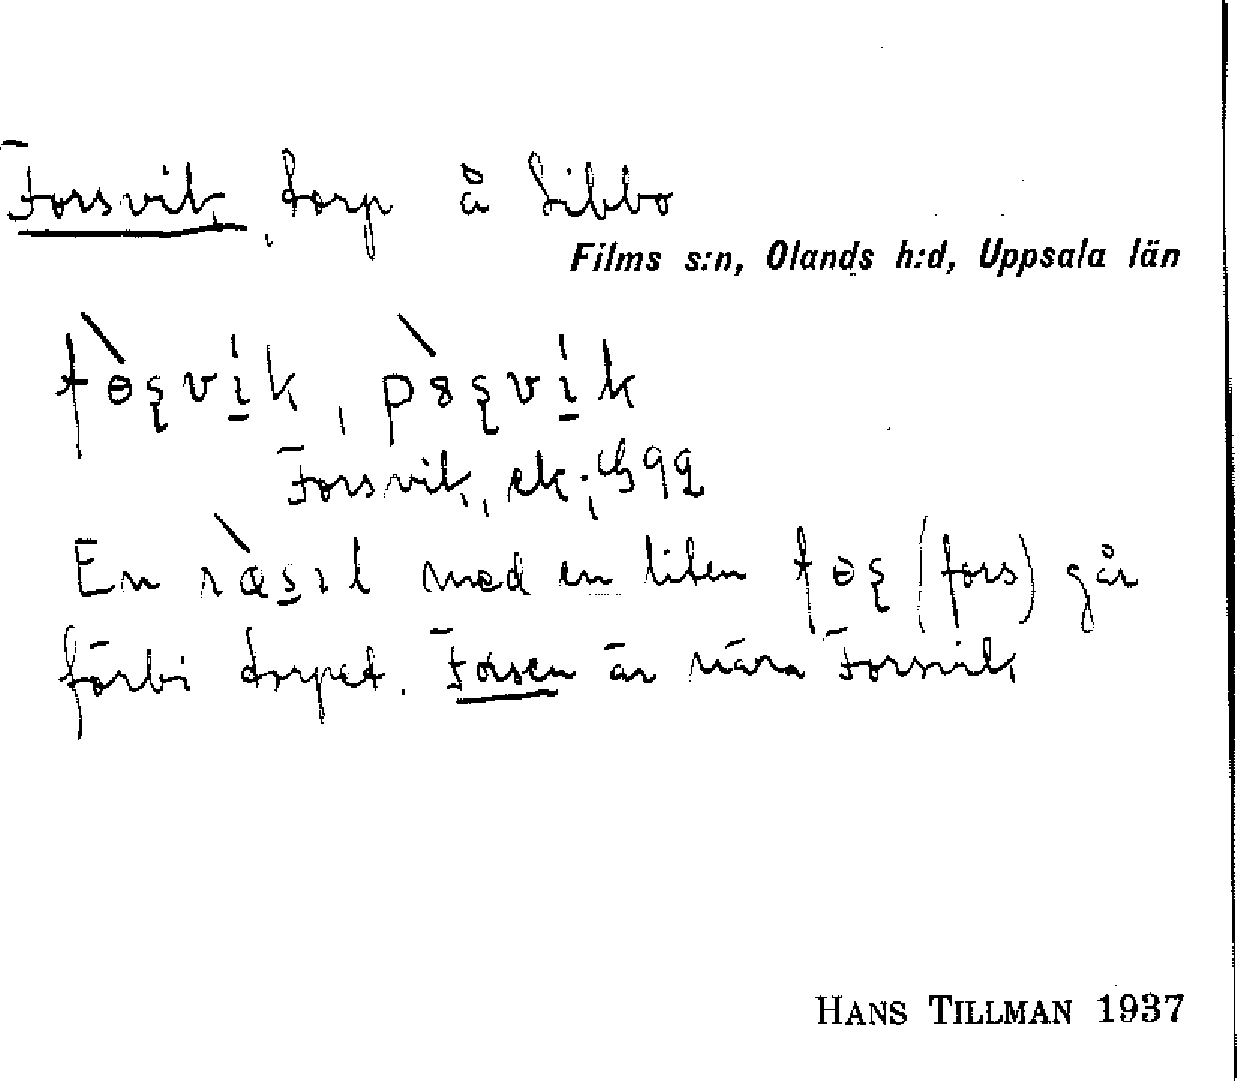 Forsvik, torp å Sibbo
Films s:n, Olands h:d, Uppsala län
fɵ̀ʂvi̲k, pɵ̀ʂvi̲k
Forsvik, ek;
En med en liten fɵʂ (fors) går
förbi torpet. Forsen är nära Forsvik
HANS TILLMAN 1937